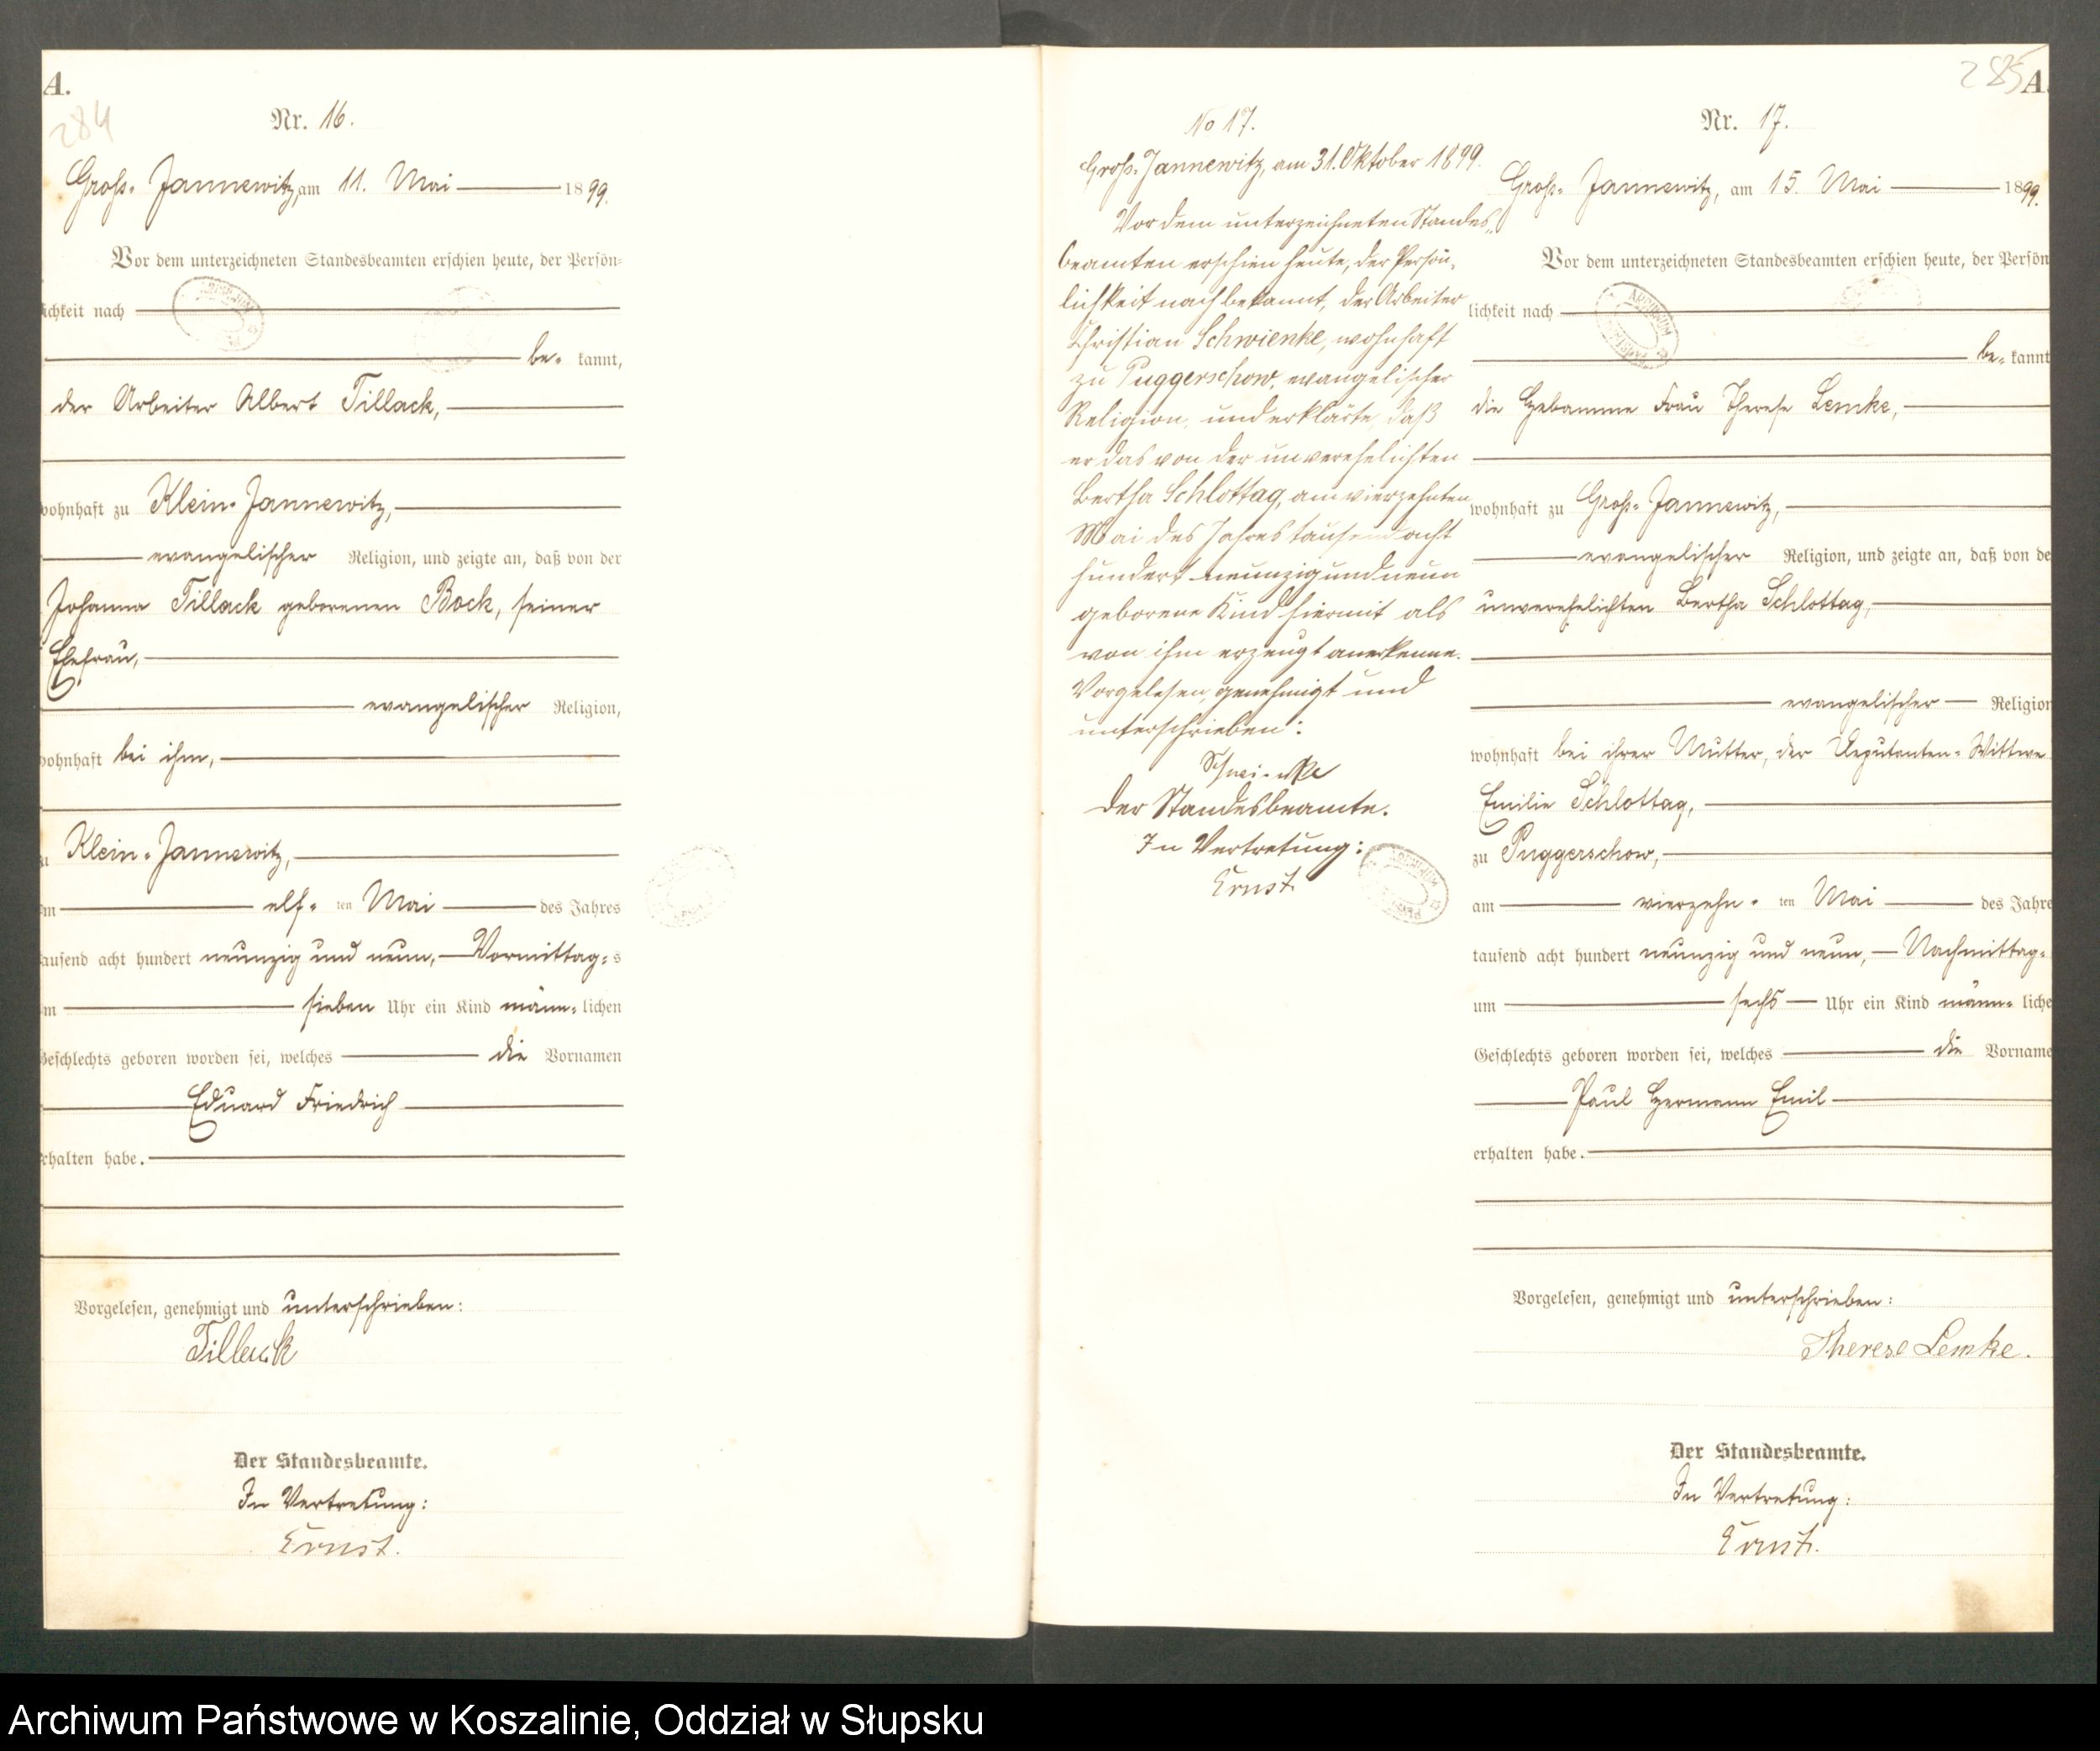 A.
284
Nr. 16.
Groß-Jannewitz, am 11. Mai 1899.
Vor dem unterzeichneten Standesbeamten erschien heute, der Persön-
lichkeit nach
be- kannt,
der Arbeiter Albert Tillack,
wohnhaft zu Klein-Jannewitz,
evangelischer Religion, und zeigte an, daß von der
Johanna Tillack geborenen Bock, seiner
Ehefrau,
evangelischer Religion,
wohnhaft bei ihm,
zu Klein-Jannewitz,
am elf- ten Mai des Jahres
tausend acht hundert neunzig und neun, Vormittag-s
um sieben Uhr ein Kind männ- lichen
Geschlechts geboren worden sei, welches die Vornamen
Eduard Friedrich
erhalten habe.
Vorgelesen, genehmigt und unterschrieben:
Tillack
Der Standesbeamte.
In Vertretung:
Ernst.
No 17.
Groß-Jannewitz, am 31. Oktober 1899.
Vor dem unterzeichneten Standes-
beamten erschien heute, der Persön-
lichkeit nach bekannt, der Arbeiter
Christian Schwienke, wohnhaft
zu Puggerschow, evangelischer
Religion, und erklärte, daß
er das von der unverehelichten
Bertha Schlottag, am vierzehnten
Mai des Jahres tausend acht
hundert neunzig und neun
geborene Kind hiermit als
von ihm erzeugt anerkenne.
Vorgelesen, genehmigt und
unterschrieben:
Der Standesbeamte.
In Vertretung:
Ernst
285
A.
Nr. 17.
Groß-Jannewitz, am 15. Mai 1899.
Vor dem unterzeichneten Standesbeamten erschien heute, der Persön
lichkeit nach
be- kannt
die Hebamme Frau Therese Lemke,
wohnhaft zu Groß-Jannewitz,
evangelischer Religion, und zeigte an, daß von de
unverehelichten Bertha Schlottag,
evangelischer Religion
wohnhaft bei ihrer Mutter, der Deputanten-Wittwe
Emilie Schlottag,
zu Puggerschow,
am vierzehn- ten Mai des Jahre
tausend acht hundert neunzig und neun, Nachmittag-
um sechs Uhr ein Kind männ- liche
Geschlechts geboren worden sei, welches die Vorname
Paul Hermann Emil
erhalten habe.
Vorgelesen, genehmigt und unterschrieben:
Therese Lemke.
Der Standesbeamte.
In Vertretung:
Ernst.
Archiwum Państwowe w Koszalinie, Oddział w Słupsku